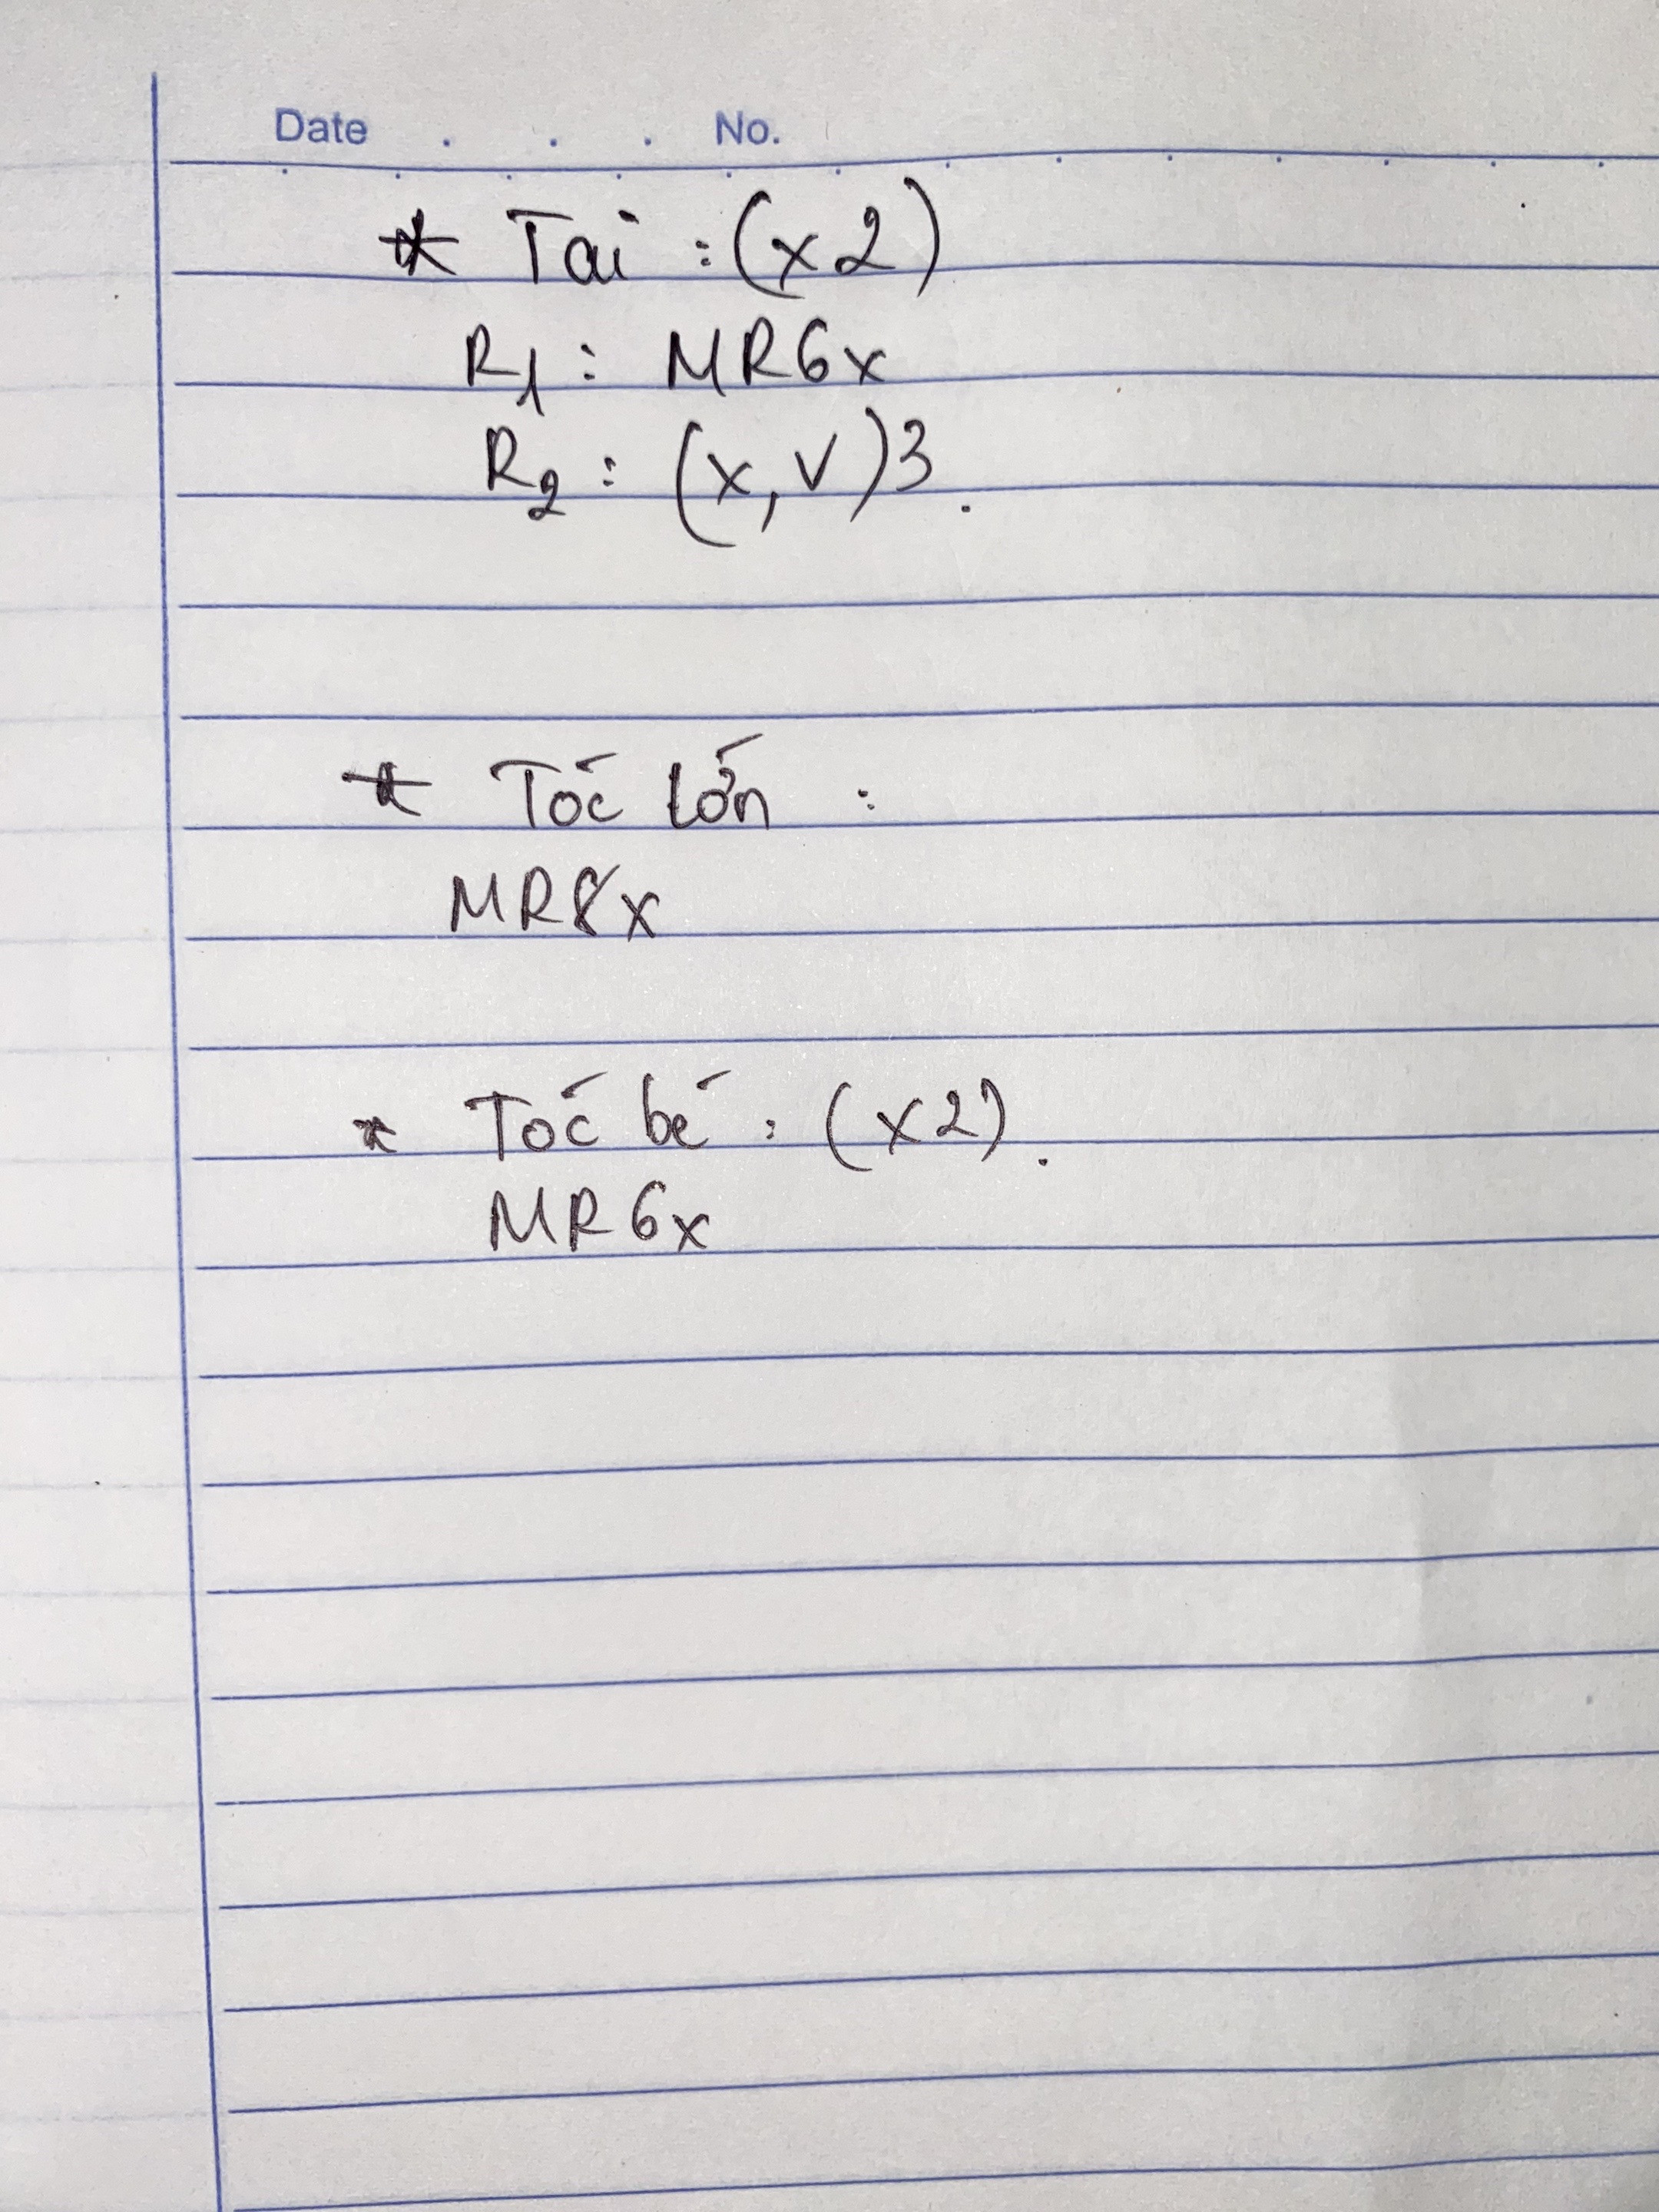 Date . . . No.
* Tai : (x2)
R1 : MR6x
R2 : (x, v)3.
* Tóc lớn :
MR8x
* Tóc bé : (x2).
MR6x